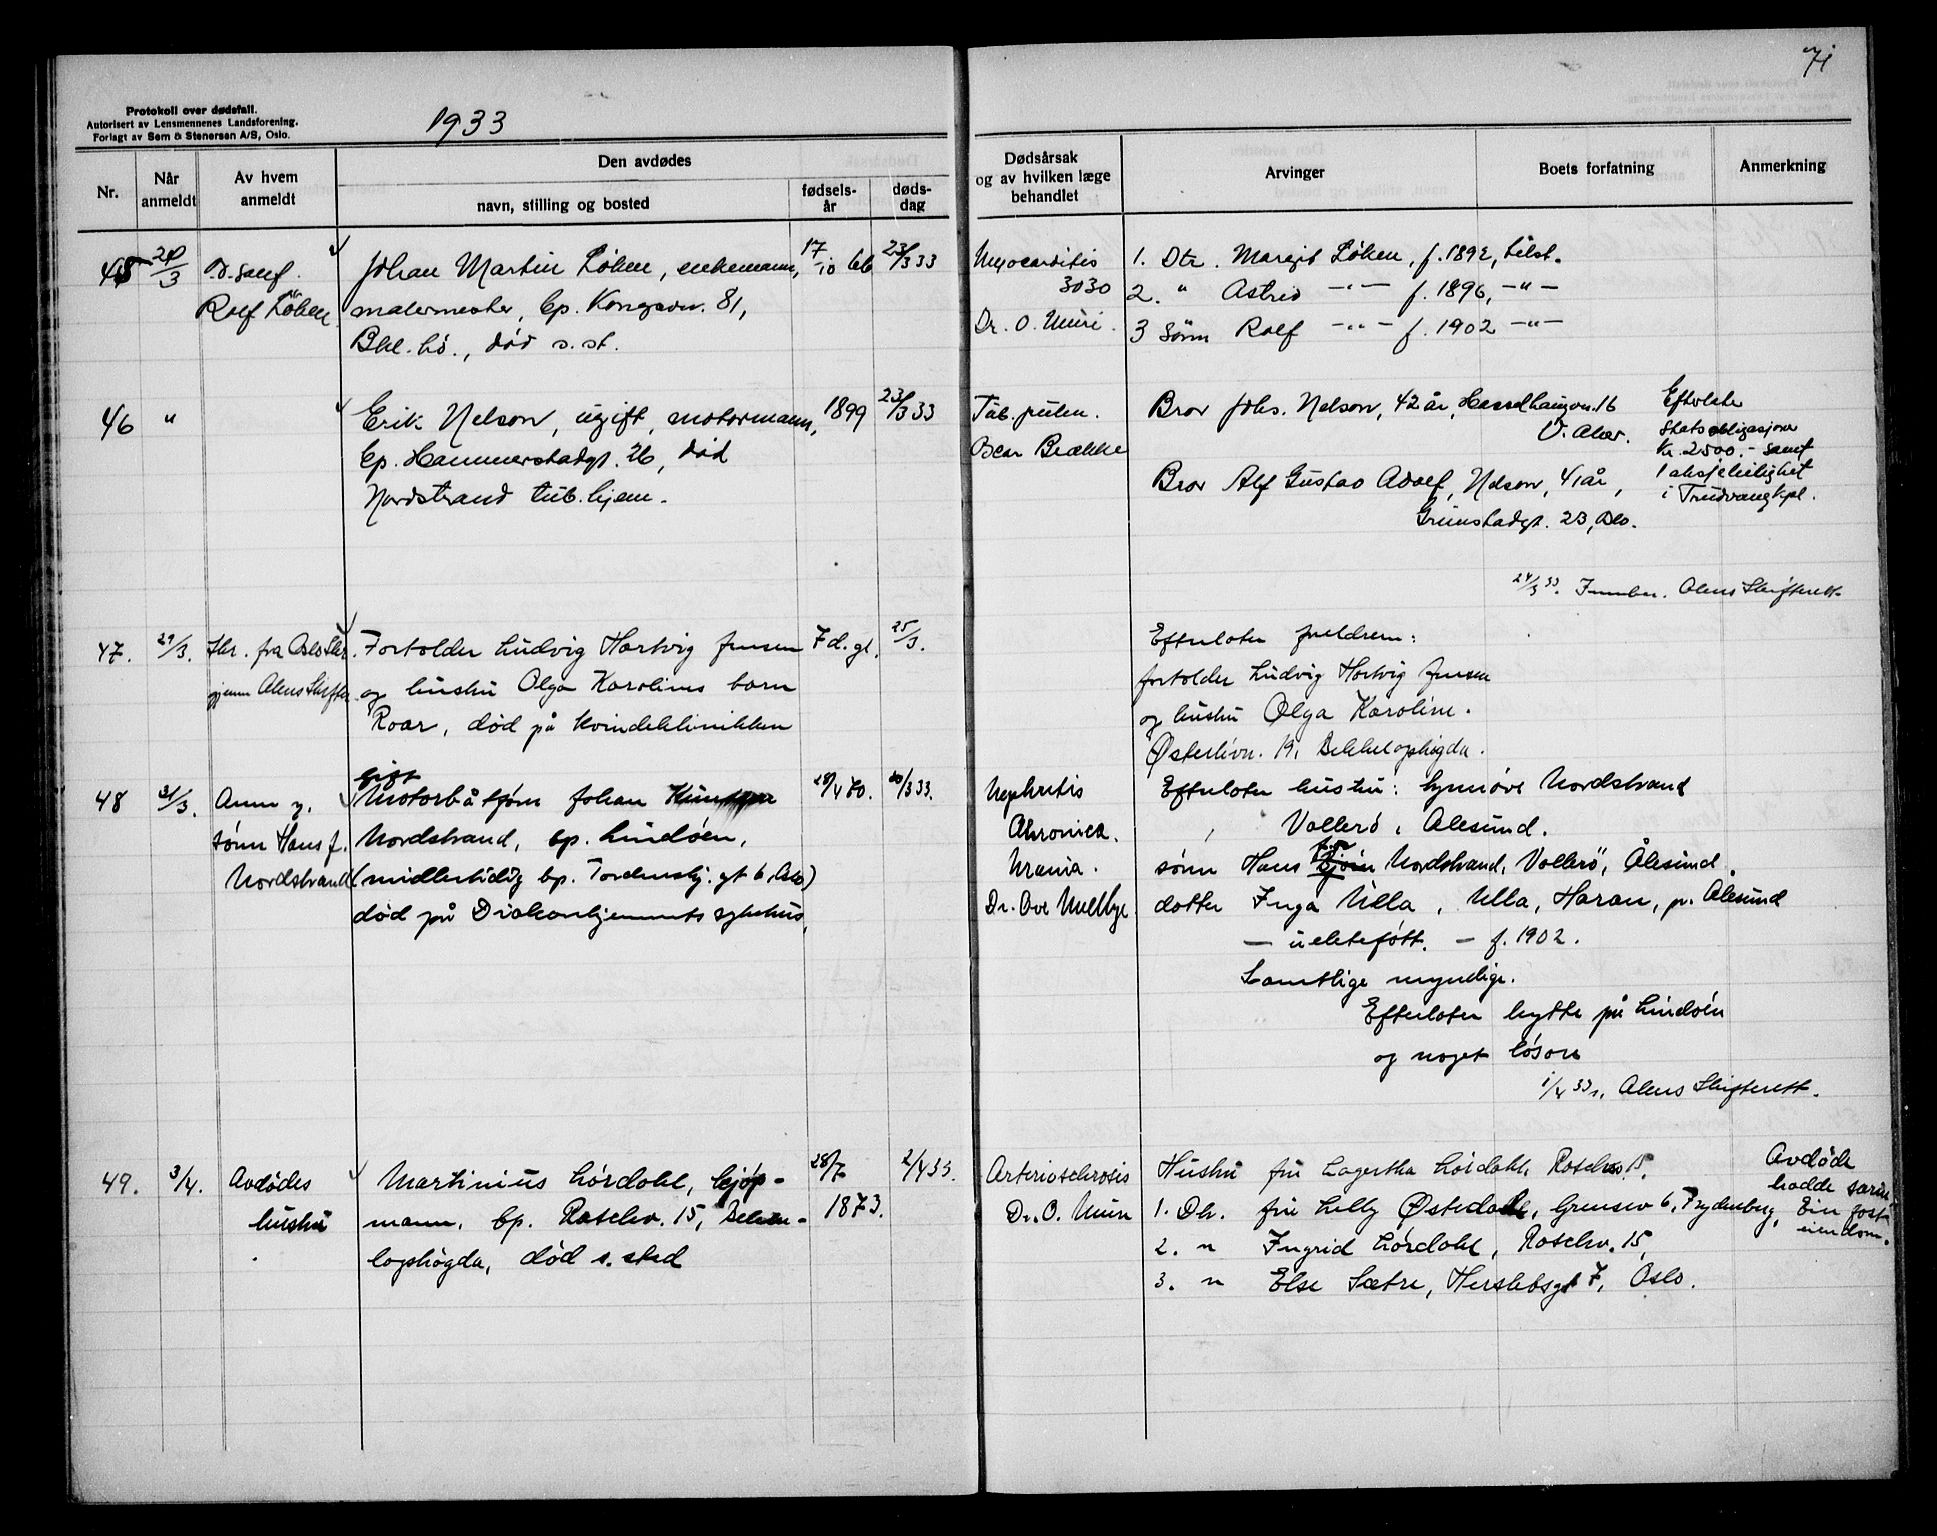 71
Protokoll over dødsfall.
Autorisert av Lensmennenes Landsforening.
Forlagt av Sem & Stenersen A/S, Oslo.
1933
Nr.
Når anmeldt
Av hvem anmeldt
Den avdødes
navn, stilling og bosted
fødsels-år
døds-dag
Dødsårsak
og av hvilken læge
behandlet
Arvinger
Boets forfatning
Anmerkning
45
Rolf Løken
Johan Martin Løken, enkemann, 17/10 66 23/3 33
malermester, bp. Kongsvn. 81,
Bkl.hø., død s. st.
Myocarditis
3030
Dr. O. Muri.
1. Dtr. Margit Løken, f. 1892, tilst.
2. " Astrid -"- f. 1896, -"-
3 Sønn Rolf -"- f. 1902 -"-
46 "
Erik Nelson, ugift, motormann, 1899 23/3 33
bp. Hammerstadgt. 26, død
Nordstrand tub.hjem.
Tub. pulm.
Oscar Brække
Bror Johs. Nelson, 42 år, 16
V. Aker.
Bror Alf Gustav Adolf Nelson, 41 år,
Grimstadgt. 23, Oslo.
Efterlater
Statsobligasjoner
kr. 2500.- samt
1 aksjeleilighet
i Trudvang kpl.
24/3 33. Innber. Akers Skifterett.
47. 29/3. Skr. fra Oslo Skr.
gjenn Akers Skifter.
Fortolder Ludvig Hartvig Jensen 7 d. gl. 25/3.
og hustru Olga Karolines barn
Roar, død på Kvindeklinikken
Efterlater foreldrene:
fortolder Ludvig Hartvig Jensen
og hustru Olga Karoline.
Østerlivn. 19, Bekkelagshøgda.
48 31/3. Anm. v.
sønn Hans J.
Nordstrand
gift
Motorbåtfører Johan 28/4 70. 30/3 33.
Nordstrand, bp. Lindøen,
(midlertidig bp. Tordenskj. gt 6, Oslo)
død på Diakonhjemmets sykehus.
Nephritis
Chronica.
Uremia.
Dr. Ove Mellbye.
Efterlater hustru: Synnøve Nordstrand
Vallerø, Ålesund.
sønn Hans Nordstrand, Vallerø, Ålesund.
datter Inga Ulla, Ulla, Haram, pr. Ålesund
- f. 1902.
Samtlige myndige.
Efterlater hytte på Lindøen
og noget løsøre
1/4 33, Akers Skifterett.
49. 3/4. Avdødes
hustru
Martinius Lørdahl, kjøp- 28/7 1873. 2/4 33.
mann, bp. Raschsv. 15, Bekke-
lagshøgda, død s. sted
Arteriosclerosis
Dr. O. Muri
Hustru fru Lagertha Lørdahl, Raschsv. 15.
1. Dtr. fru Lilly Østedahl, Grensev. 6, Frydenberg,
2. " Ingrid Lørdahl, Raschsv. 15,
3. " Else Sætre, Herslebsgt 7, Oslo.
Avdøde
hadde særeie
Ein fast
eiendom.